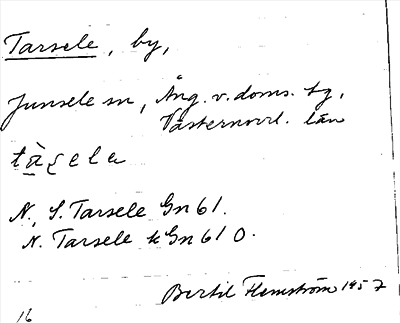 Tarsele, by,
Junsele sn, Ång. v. doms. tg,
Västernorrl. län
tàʂela
N., S. Tarsele Gn 61.
N. Tarsele k Gn 61 0.
Bertil Flemström 1957
16